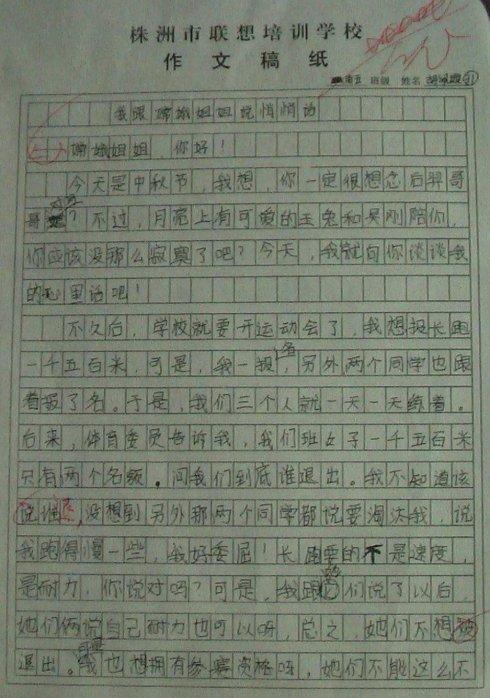 株洲市联想培训学校
作文稿纸
班级 姓名
我跟嫦娥姐姐说悄悄话
嫦娥姐姐，你好！
今天是中秋节，我想，你一定很想念后羿哥
哥吧？不过，月亮上有可爱的玉兔和吴刚陪你，
你应该没那么寂寞了吧？今天，我就向你谈谈我
的心里话吧！
不久后，学校就要开运动会了，我想报长跑
一千五百米，可是，我一报名，另外两个同学也跟
着报了名。于是，我们三个人就一天一天练着。
后来，体育委员告诉我，我们班女子一千五百米
只有两个名额。问我们到底谁退出。我不知道该
说谁退，没想到另外那两个同学都说要淘汰我，说
我跑得慢一些，我好委屈！长跑要的不是速度，
是耐力，你说对吗？可是，我跟她们说了以后，
她们俩说自己耐力也可以呀，总之，她们不想被
退出。可是我也想拥有参赛资格呀，她们不能这么不